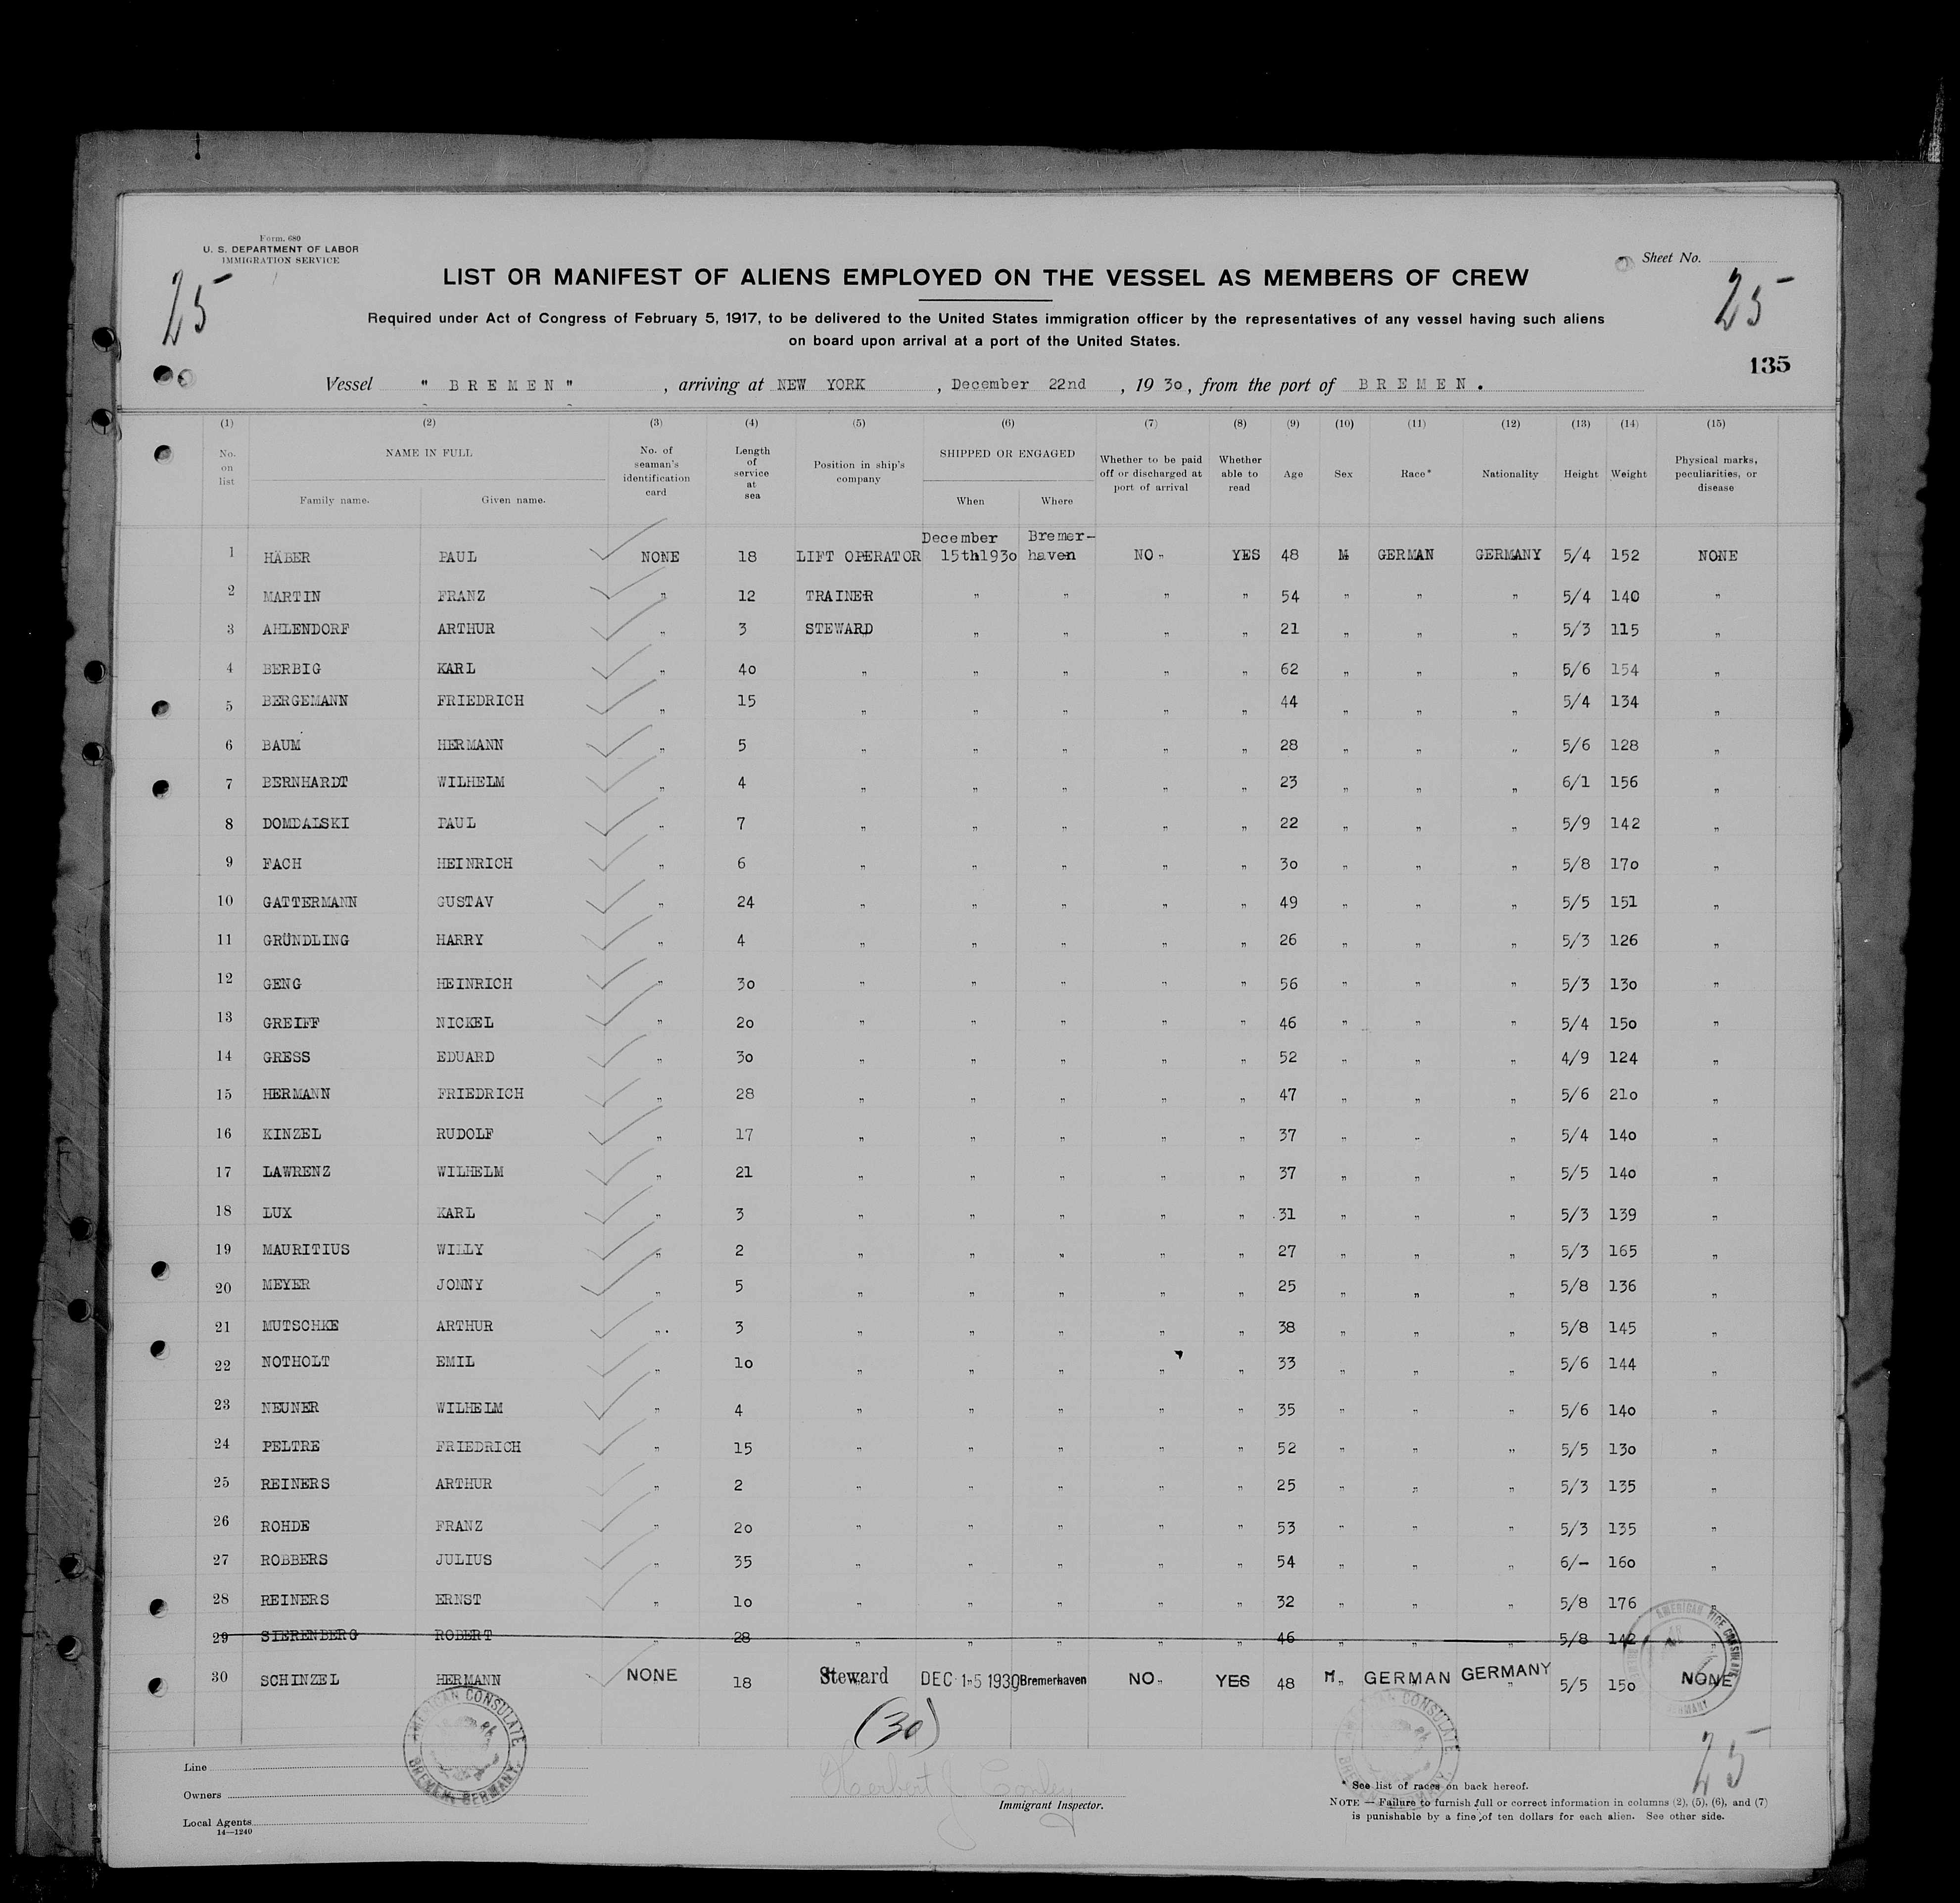 Form. 680
U. S. DEPARTMENT OF LABOR
IMMIGRATION SERVICE
25
LIST OR MANIFEST OF ALIENS EMPLOYED ON THE VESSEL AS MEMBERS OF CREW
Sheet No.
25
Required under Act of Congress of February 5, 1917, to be delivered to the United States immigration officer by the representatives of any vessel having such aliens
on board upon arrival at a port of the United States.
135
Vessel " BREMEN " , arriving at NEW YORK , December 22nd , 19 3o , from the port of BREMEN.
(1) (2) (3) (4) (5) (6) (7) (8) (9) (10) (11) (12) (13) (14) (15)
No. on list NAME IN FULL Family name. Given name. No. of seaman's identification card Length of service at sea Position in ship's company SHIPPED OR ENGAGED When Where Whether to be paid off or discharged at port of arrival Whether able to read Age Sex Race* Nationality Height Weight Physical marks, peculiarities, or disease
1 HÄBER PAUL NONE 18 LIFT OPERATOR December 15th193o Bremer-haven NO " YES 48 M GERMAN GERMANY 5/4 152 NONE
2 MARTIN FRANZ " 12 TRAINER " " " " 54 " " " 5/4 14o "
3 AHLENDORF ARTHUR " 3 STEWARD " " " " 21 " " " 5/3 115 "
4 BERBIG KARL " 4o " " " " " 62 " " " 5/6 154 "
5 BERGEMANN FRIEDRICH " 15 " " " " " 44 " " " 5/4 134 "
6 BAUM HERMANN " 5 " " " " " 28 " " " 5/6 128 "
7 BERNHARDT WILHELM " 4 " " " " " 23 " " " 6/1 156 "
8 DOMDALSKI PAUL " 7 " " " " " 22 " " " 5/9 142 "
9 FACH HEINRICH " 6 " " " " " 3o " " " 5/8 17o "
10 GATTERMANN GUSTAV " 24 " " " " " 49 " " " 5/5 151 "
11 GRÜNDLING HARRY " 4 " " " " " 26 " " " 5/3 126 "
12 GENG HEINRICH " 3o " " " " " 56 " " " 5/3 13o "
13 GREIFF NICKEL " 2o " " " " " 46 " " " 5/4 15o "
14 GRESS EDUARD " 3o " " " " " 52 " " " 4/9 124 "
15 HERMANN FRIEDRICH " 28 " " " " " 47 " " " 5/6 21o "
16 KINZEL RUDOLF " 17 " " " " " 37 " " " 5/4 14o "
17 LAWRENZ WILHELM " 21 " " " " " 37 " " " 5/5 14o "
18 LUX KARL " 3 " " " " " 31 " " " 5/3 139 "
19 MAURITIUS WILLY " 2 " " " " " 27 " " " 5/3 165 "
20 MEYER JONNY " 5 " " " " " 25 " " " 5/8 136 "
21 MUTSCHKE ARTHUR " 3 " " " " " 38 " " " 5/8 145 "
22 NOTHOLT EMIL " 1o " " " " " 33 " " " 5/6 144 "
23 NEUNER WILHELM " 4 " " " " " 35 " " " 5/6 14o "
24 PELTRE FRIEDRICH " 15 " " " " " 52 " " " 5/5 13o "
25 REINERS ARTHUR " 2 " " " " " 25 " " " 5/3 135 "
26 ROHDE FRANZ " 2o " " " " " 53 " " " 5/3 135 "
27 ROBBERS JULIUS " 35 " " " " " 54 " " " 6/- 16o "
28 REINERS ERNST " 1o " " " " " 32 " " " 5/8 176 "
29 SIERENBERG ROBERT " 28 " " " " " 46 " " " 5/8 142 "
30 SCHINZEL HERMANN NONE 18 Steward DEC 15 1930 Bremerhaven NO " YES 48 M. GERMAN GERMANY 5/5 15o NONE
(30)
AMERICAN CONSULATE
BREMEN, GERMANY.
AMERICAN CONSULATE
AMERICAN VICE CONSULATE
GERMANY
25
Line
Owners
Local Agents
14—1240
Herbert J. Conley
Immigrant Inspector.
* See list of races on back hereof.
NOTE — Failure to furnish full or correct information in columns (2), (5), (6), and (7)
is punishable by a fine of ten dollars for each alien. See other side.